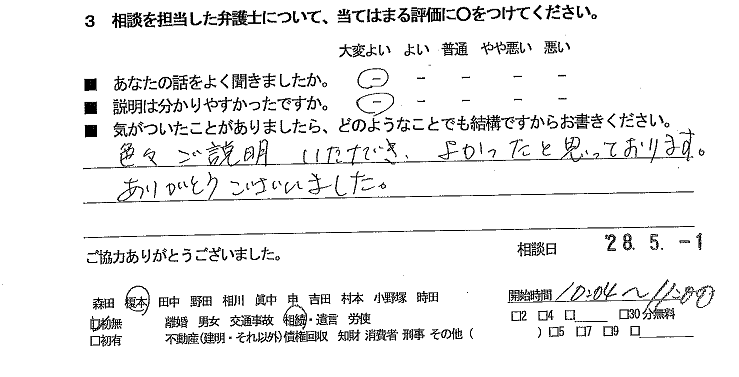 3 相談を担当した弁護士について、当てはまる評価に〇をつけてください。
大変よい よい 普通 やや悪い 悪い
■ あなたの話をよく聞きましたか。 - - - - -
■ 説明は分かりやすかったですか。 - - - - -
■ 気がついたことがありましたら、どのようなことでも結構ですからお書きください。
色々ご説明いただき、よかったと思っております。
ありがとうございました。
ご協力ありがとうございました。 相談日 '28.5.-1
森田 榎本 田中 野田 相川 眞中 申 吉田 村本 小野塚 時田 開始時間 10:04~11:00
□初無 離婚 男女 交通事故 相続・遺言 労使 □2 □4 □ □30分無料
□初有 不動産(建明・それ以外) 債権回収 知財 消費者 刑事 その他( ) □5 □7 □9 □